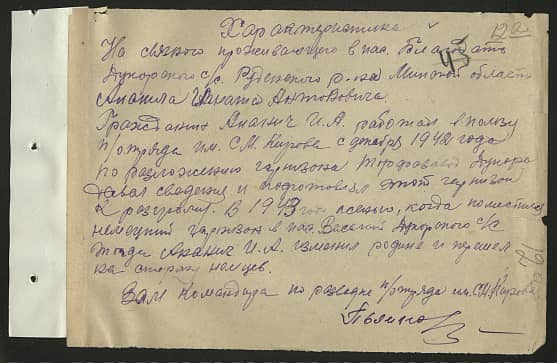 Характеристика
12а
На связного проживающего в пос. Благодать
43
Дукорского с/с. Руденского р-на Минской области
Ананича Игната Антоновича.
Гражданин Ананич И.А. работал в пользу
п/отряда им. С.М. Кирова с декабря 1942 года
по разложению гарнизона Дукора
давал сведения и подготовлял этот гарнизон
к разгрому. В 1943 году осенью, когда поместился
немецкий гарнизон в пос. Дукорского с/с
тогда Ананич И.А. изменил родине и перешел
на сторону немцев.
Зам Командира по разведке п/отряда им. С.М. Кирова